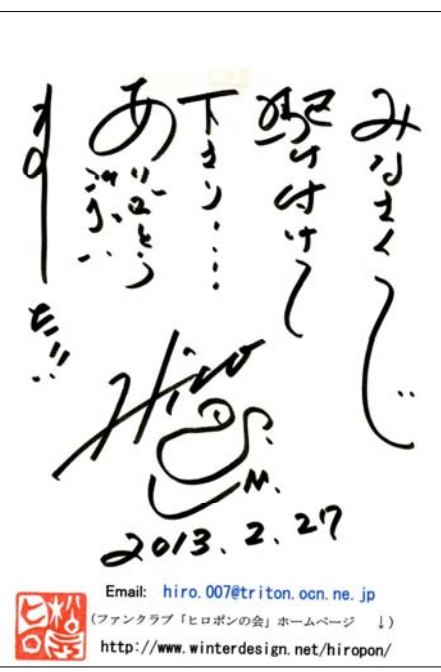 みなさんで
駆け付けて
下さり.....
ありがとう
ござい
ました!!
Hiro
M.
2013.2.27
Email: hiro.007@triton.ocn.ne.jp
(ファンクラブ「ヒロポンの会」ホームページ ↓)
http://www.winterdesign.net/hiropon/
ヒロ